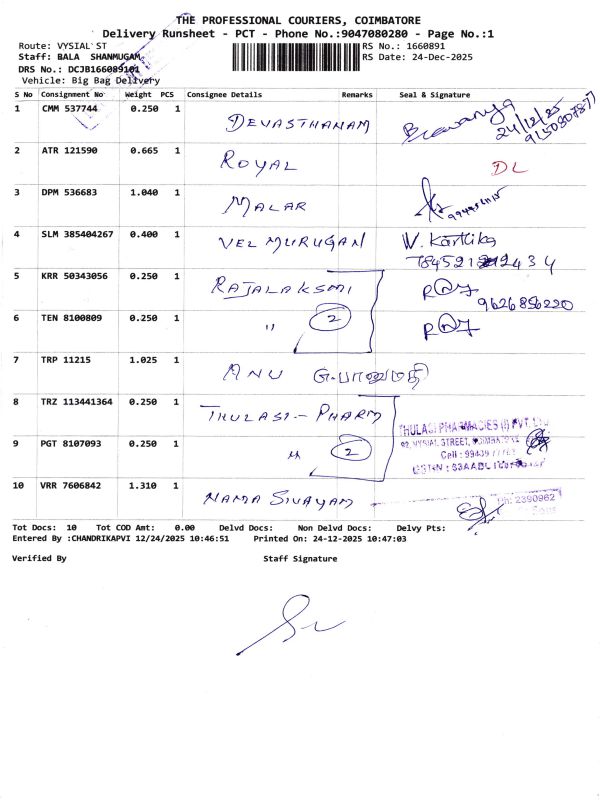 THE PROFESSIONAL COURIERS, COIMBATORE
Delivery Runsheet - PCT - Phone No.:9047080280 - Page No.:1
Route: VYSIAL ST RS No.: 1660891
Staff: BALA SHANMUGAM RS Date: 24-Dec-2025
DRS No.: DCJB166089101
Vehicle: Big Bag Delivery
S No Consignment No Weight PCS Consignee Details Remarks Seal & Signature
1 CMM 537744 0.250 1 DEVASTHANAM 24/12/25
2 ATR 121590 0.665 1 ROYAL DL
3 DPM 536683 1.040 1 MALAR
4 SLM 385404267 0.400 1 VEL MURUGAN W. Karthika
5 KRR 50343056 0.250 1 RAJALAKSMI
9626856220
6 TEN 8100809 0.250 1 " 2
7 TRP 11215 1.025 1 ANU
8 TRZ 113441364 0.250 1 THULASI - PHARM
THULASI PHARMACIES (I) PVT. LTD
9 PGT 8107093 0.250 1 " 2 VYSIAL STREET,
10 VRR 7606842 1.310 1 NAMA SIVAYAM 2390962
Tot Docs: 10 Tot COD Amt: 0.00 Delvd Docs: Non Delvd Docs: Delvy Pts:
Entered By :CHANDRIKAPVI 12/24/2025 10:46:51 Printed On: 24-12-2025 10:47:03
Verified By Staff Signature